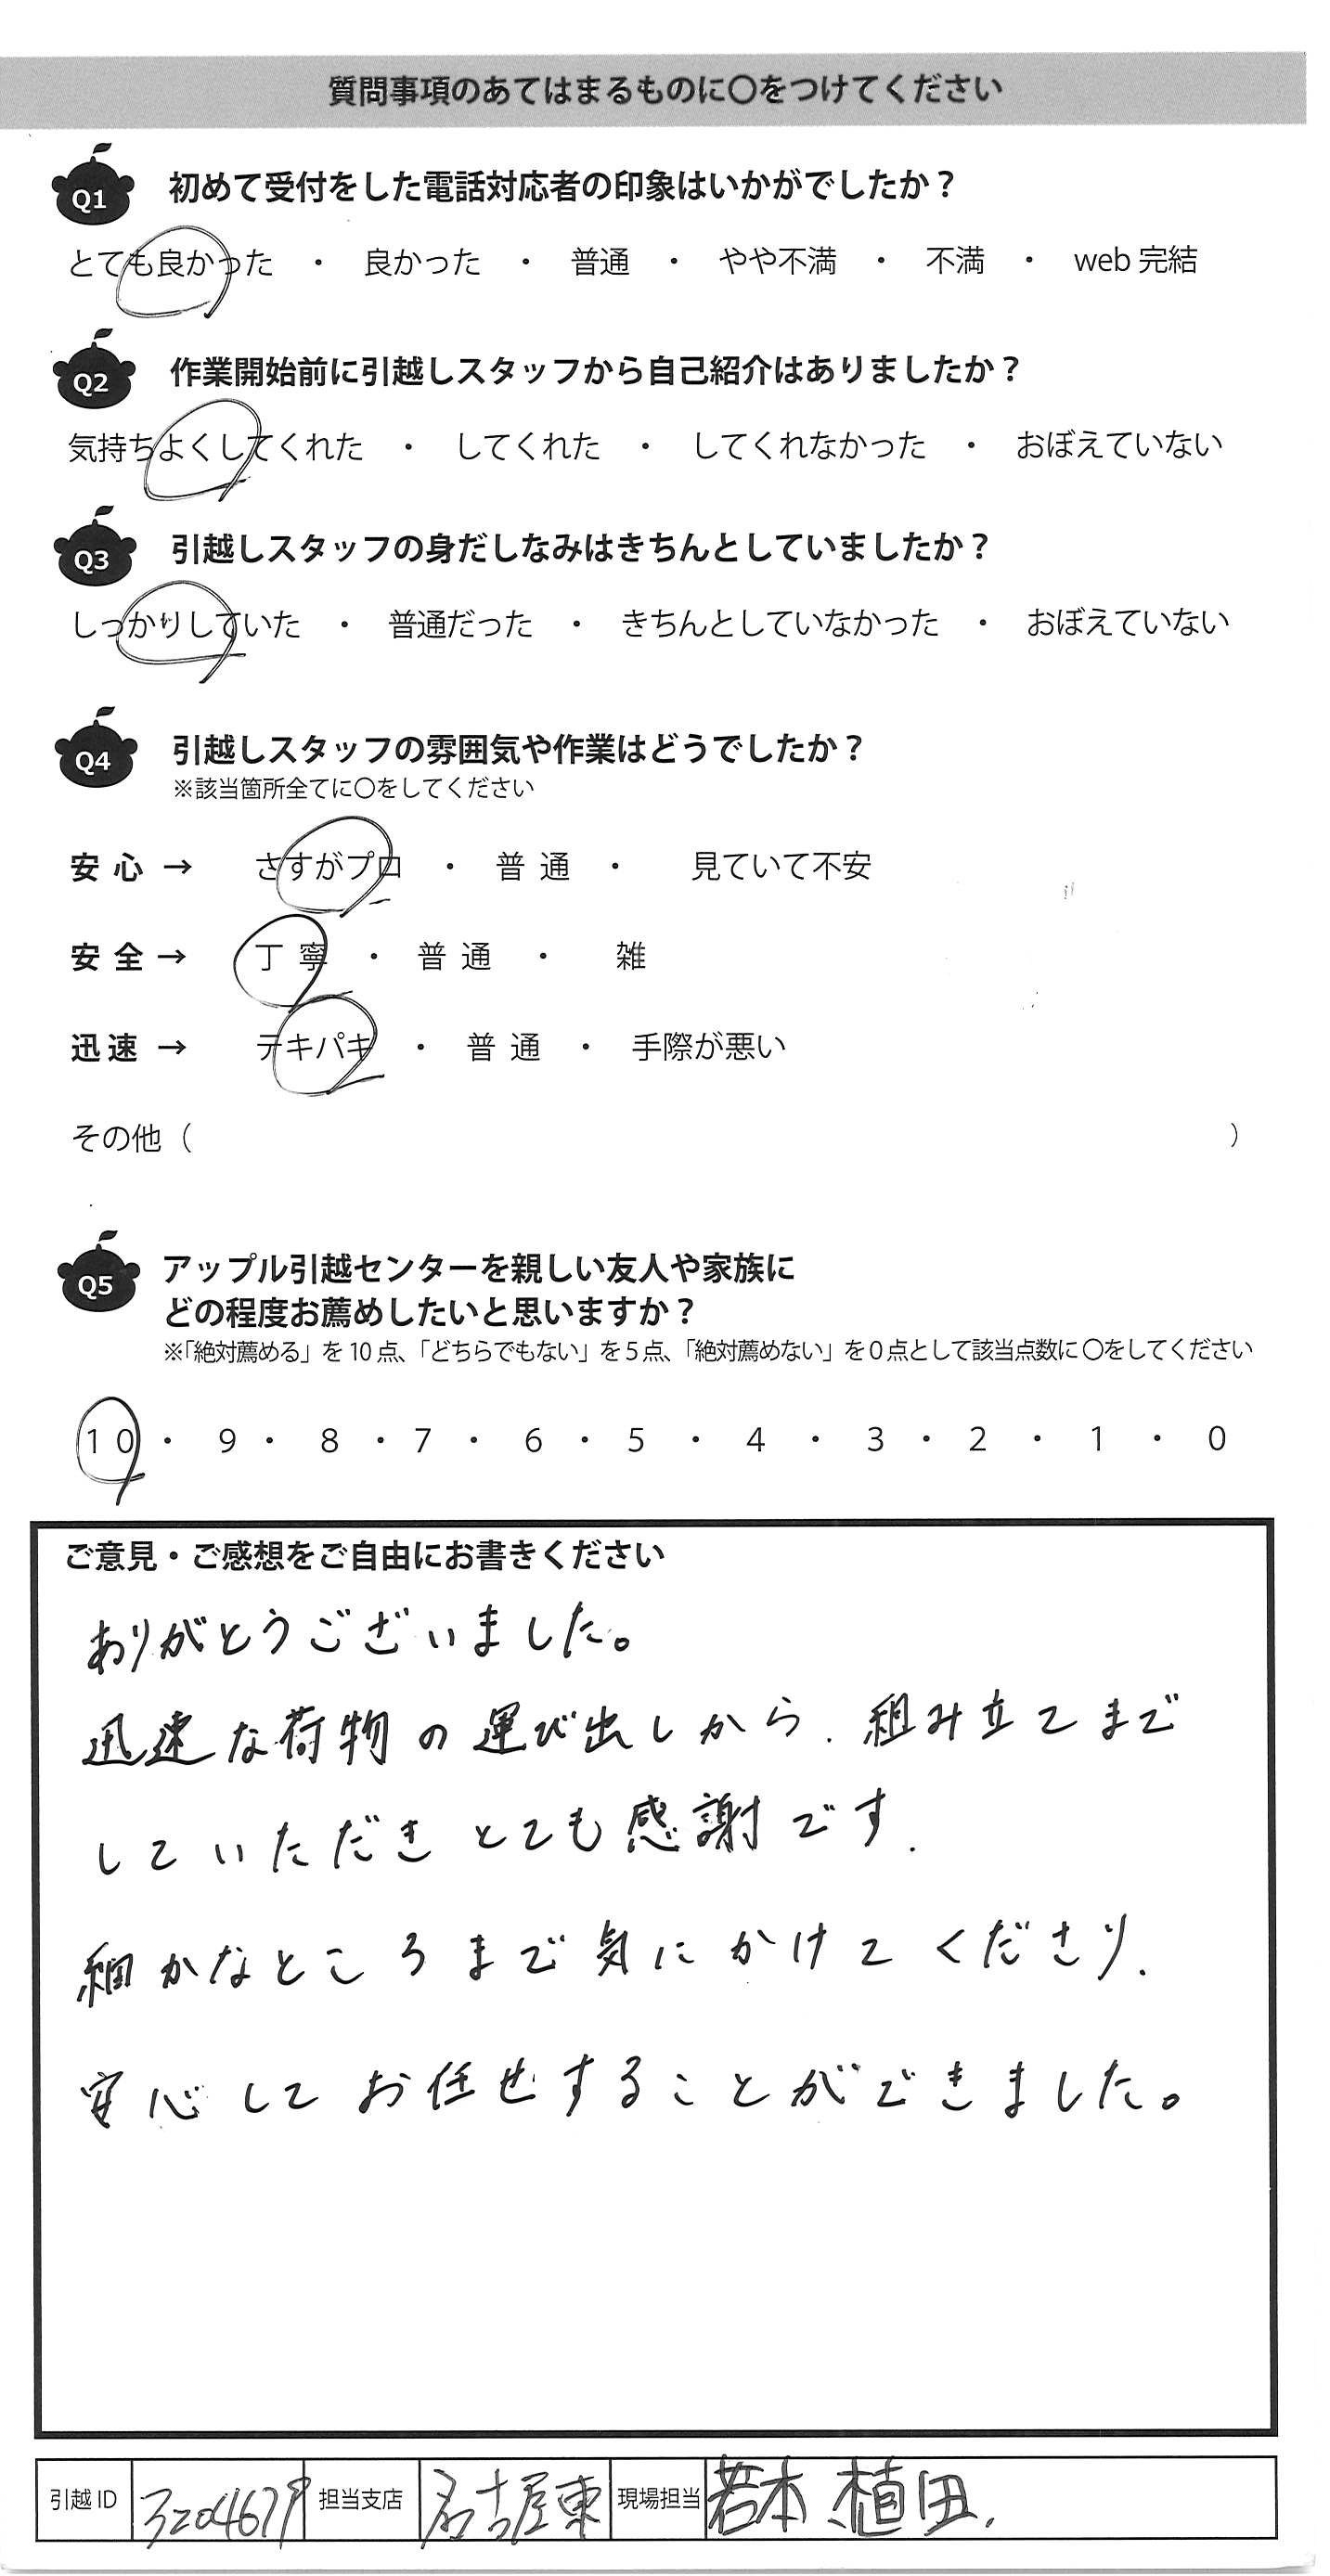 質問事項のあてはまるものに〇をつけてください
Q1 初めて受付をした電話対応者の印象はいかがでしたか？
とても良かった ・ 良かった ・ 普通 ・ やや不満 ・ 不満 ・ web 完結
Q2 作業開始前に引越しスタッフから自己紹介はありましたか？
気持ちよくしてくれた ・ してくれた ・ してくれなかった ・ おぼえていない
Q3 引越しスタッフの身だしなみはきちんとしていましたか？
しっかりしていた ・ 普通だった ・ きちんとしていなかった ・ おぼえていない
Q4 引越しスタッフの雰囲気や作業はどうでしたか？
※該当箇所全てに〇をしてください
安心 → さすがプロ ・ 普通 ・ 見ていて不安
安全 → 丁寧 ・ 普通 ・ 雑
迅速 → テキパキ ・ 普通 ・ 手際が悪い
その他（ ）
Q5 アップル引越センターを親しい友人や家族に
どの程度お薦めしたいと思いますか？
※「絶対薦める」を 10 点、「どちらでもない」を 5 点、「絶対薦めない」を 0 点として該当点数に 〇をしてください
10 ・ 9 ・ 8 ・ 7 ・ 6 ・ 5 ・ 4 ・ 3 ・ 2 ・ 1 ・ 0
ご意見・ご感想をご自由にお書きください
ありがとうございました。
迅速な荷物の運び出しから、組み立てまで
していただきとても感謝です.
細かなところまで気にかけてくださり、
安心してお任せすることができました。
引越 ID 担当支店 名古屋東 現場担当 若本、植田.